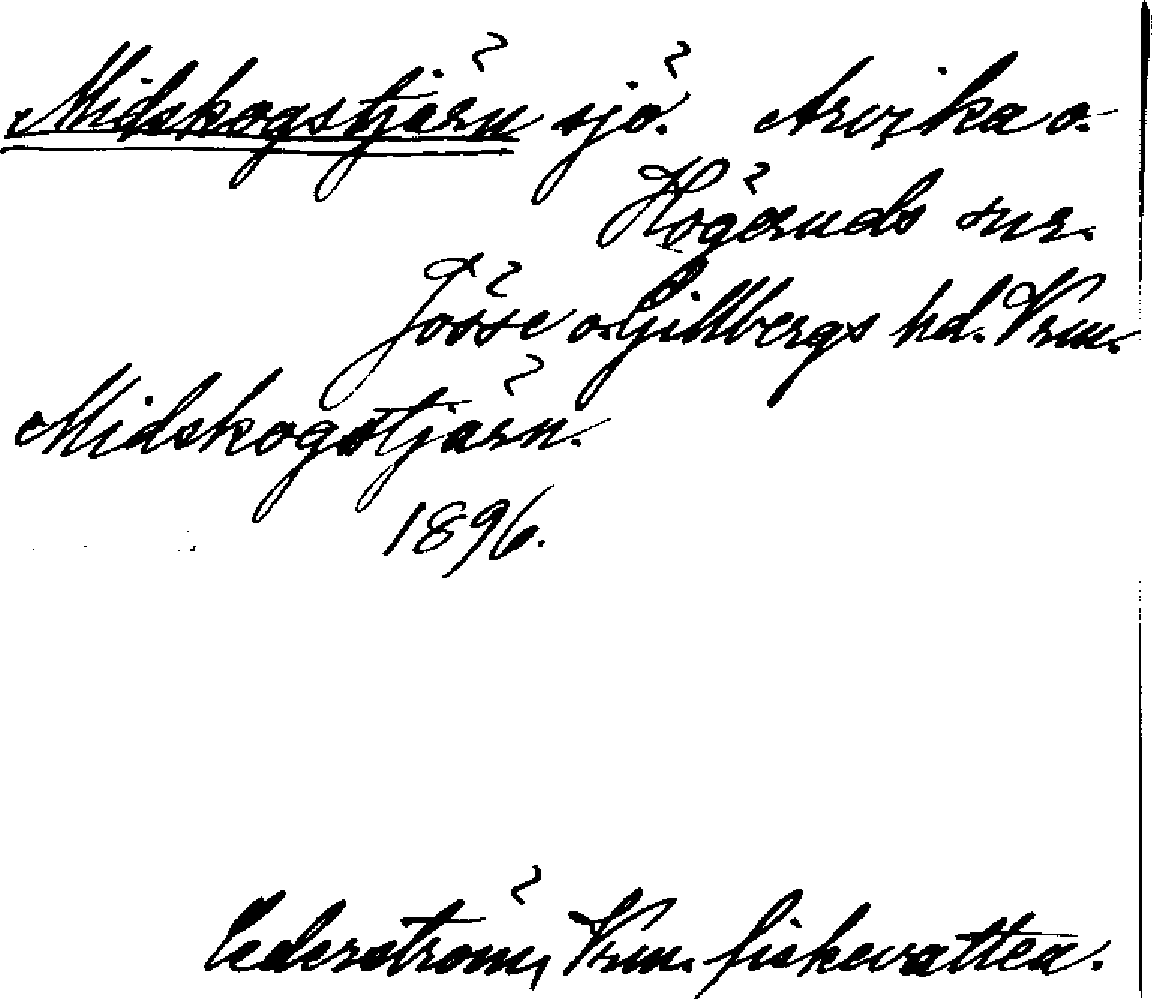 Midskogstjärn sjö. Arvika o.
Högeruds snr.
Jösse o. Gillbergs hd. Vrm.
Midskogstjärn.
1896.
Cederström, Vrm. fiskevatten.